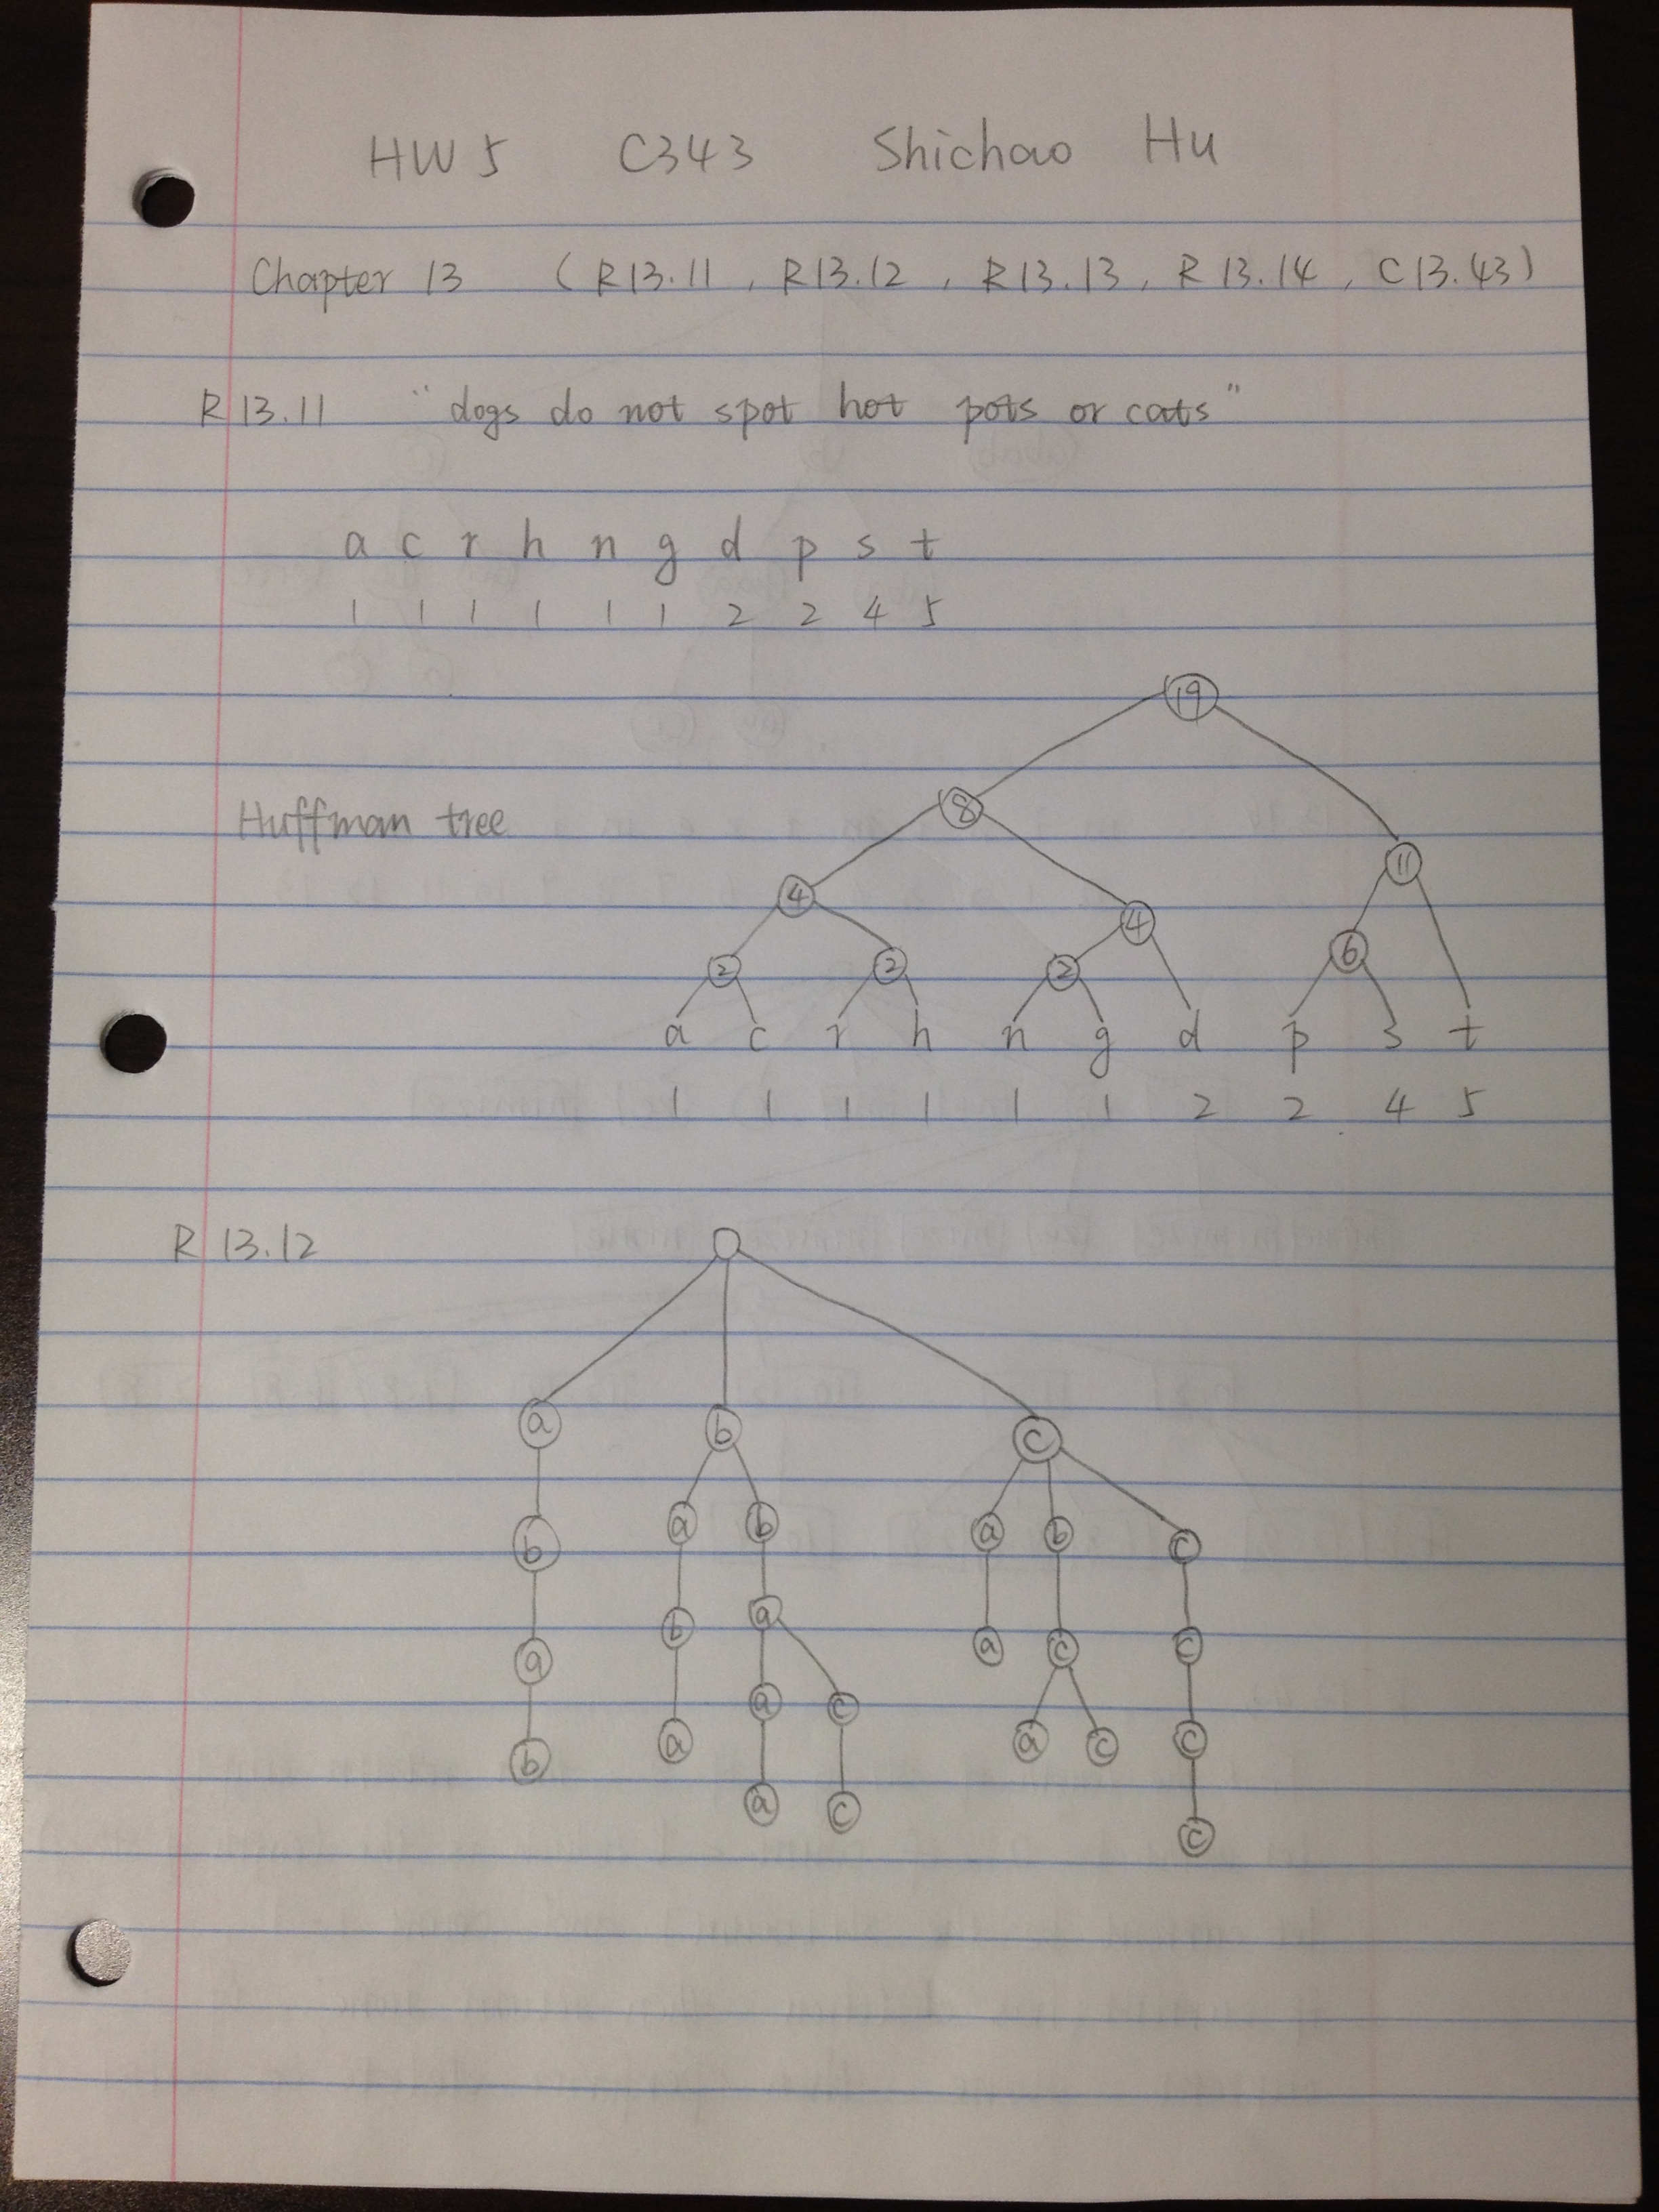 HW5 C343 Shichao Hu
Chapter 13 (R13.11, R13.12, R13.13, R13.14, C13.43)
R13.11 "dogs do not spot hot pots or cats"
a c r h n g d p s t
1 1 1 1 1 1 2 2 4 5
19
8
Huffman tree
11
4 4
6
2 2 2
a c r h n g d p s t
1 1 1 1 1 1 2 2 4 5
R13.12
a b c
b a b a b c
a b a a c c
b a a c a c c
a c c